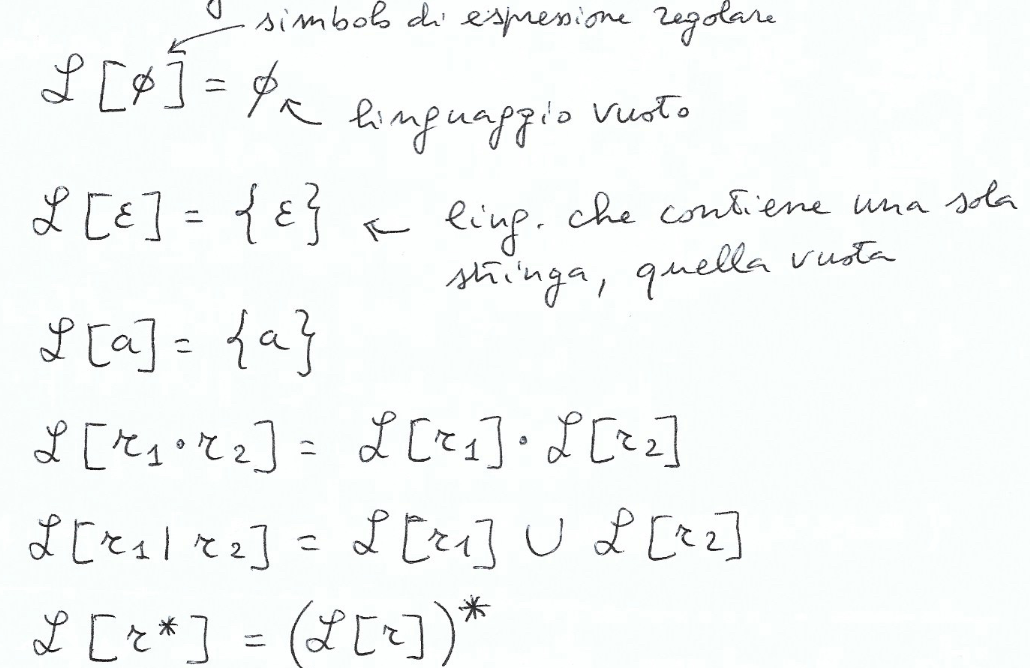 simbolo di espressione regolare
ℒ[∅] = ∅ ↖ linguaggio vuoto
ℒ[ε] = {ε} ← ling. che contiene una sola
stringa, quella vuota
ℒ[a] = {a}
ℒ[r₁·r₂] = ℒ[r₁]·ℒ[r₂]
ℒ[r₁|r₂] = ℒ[r₁] ∪ ℒ[r₂]
ℒ[r*] = (ℒ[r])*